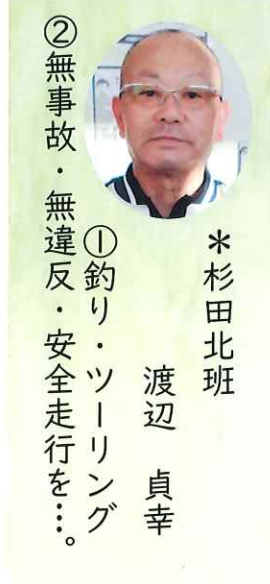 ＊杉田北班
渡辺　貞幸
①釣り・ツーリング
②無事故・無違反・安全走行を…。